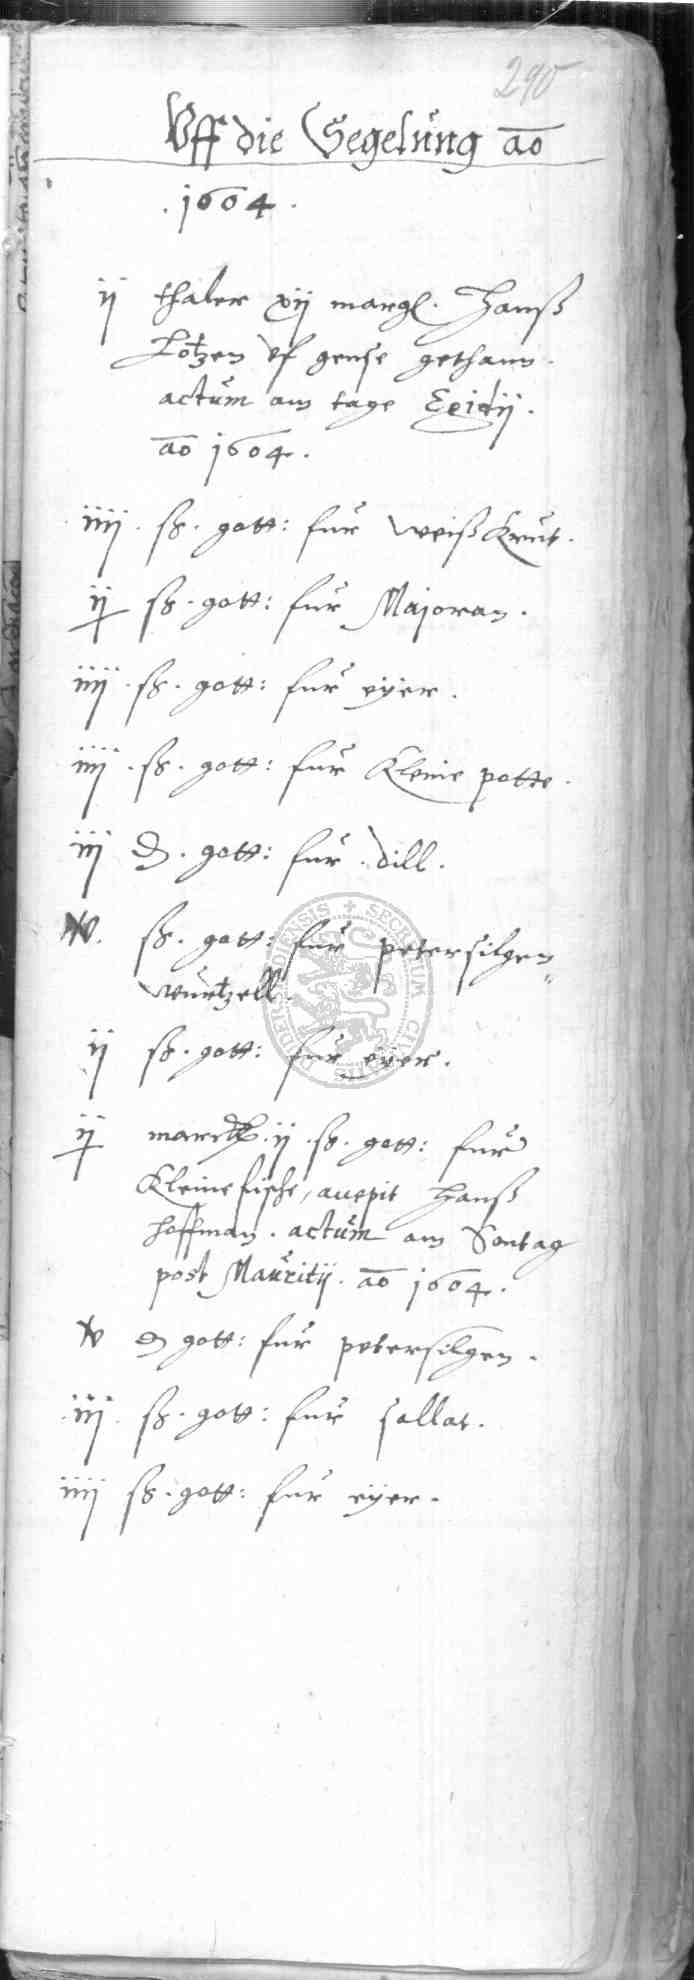 290
Uff die Segelung ao
. 1604 .
ij thaler xij margl. Hanß
Lotzen uf gense gethann.
actum am tage Egidij.
ao 1604.
iiij . ß . gott: fur weiß Krut.
ij ß . gott: fur Majoran.
iiij . ß . gott: fur eyer.
iiij . ß . gott: fur Kleine potte.
iij d . gott: fur dill.
ß . gott: fur petersilgen
wurtzell.
ij ß . gott: fur eyer.
ij marck . ij . ß . gott: fur
Kleine fische, accepit Hanß
Hoffman . actum am Sontag
post Mauritij . ao 1604.
v d gott: fur petersilgen.
iij . ß . gott: fur sallat.
iiij ß . gott: fur eyer.
SECRETUM CIVITATIS